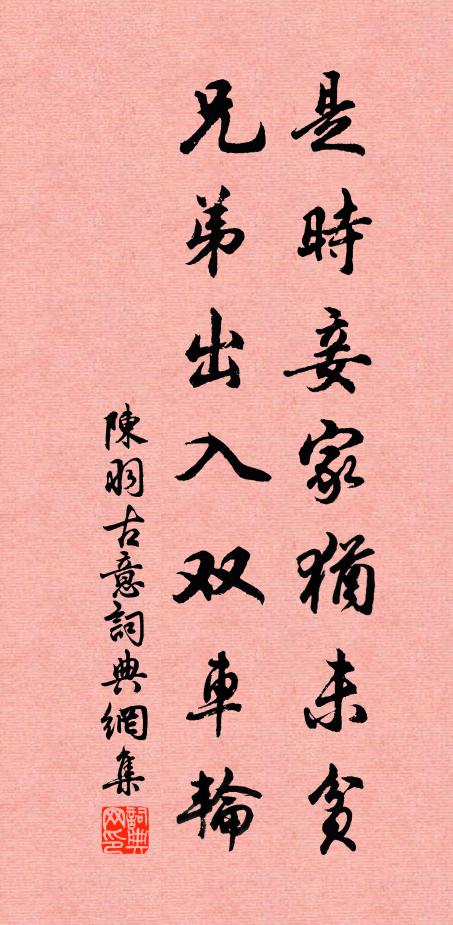 是時妾家猶未貧
兄弟出入双車輪
陳羽古意詞典網集
詞典网印